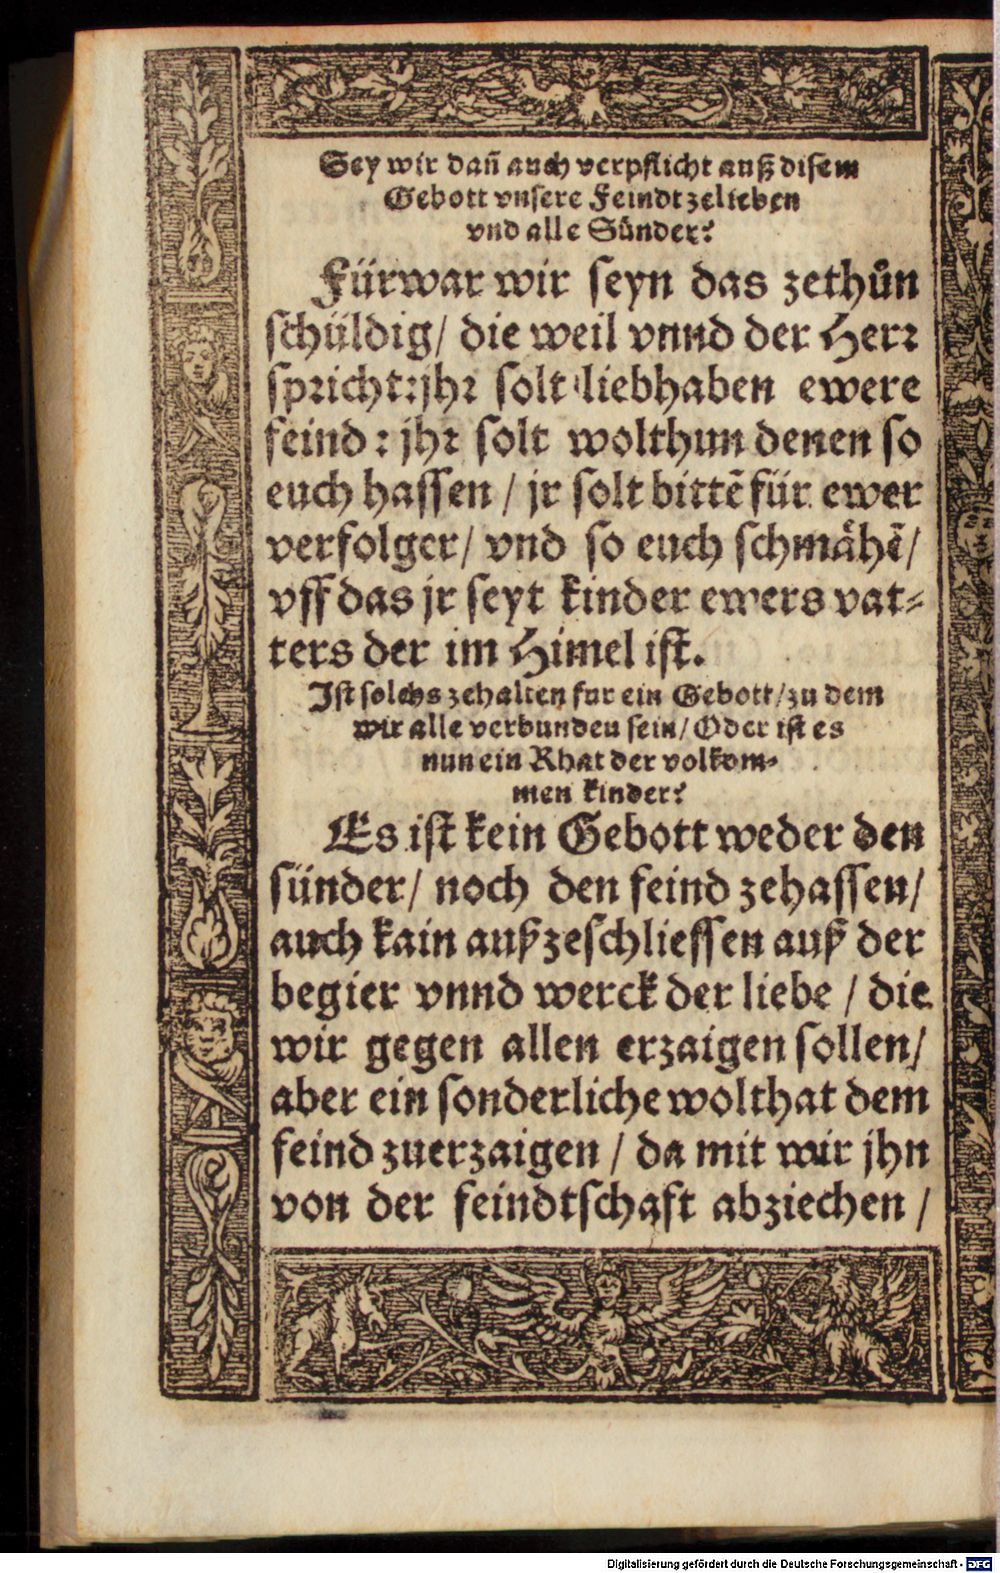 Sey wir dañ auch verpflicht auß disem
Gebott vnsere Feindt zelieben
vnd alle Sünder?
Fürwar wir seyn das zethůn
schüldig/ die weil vnnd der Herr
spricht: jhr solt liebhaben ewere
feind: jhr solt wolthun denen so
euch hassen / jr solt bittẽ für ewer
verfolger/ vnd so euch schmåhẽ/
vff das jr seyt kinder ewers vat⸗
ters der im Himel ist.
Ist solchs zehalten fur ein Gebott/ zu dem
wir alle verbunden sein/ Oder ist es
nun ein Rhat der volkom⸗
men kinder?
Es ist kein Gebott weder den
sünder/ noch den feind zehassen/
auch kain außzeschliessen auß der
begier vnnd werck der liebe / die
wir gegen allen erzaigen sollen/
aber ein sonderliche wolthat dem
feind zuerzaigen / da mit wir jhn
von der feindtschaft abziechen /
Digitalisierung gefördert durch die Deutsche Forschungsgemeinschaft - DFG